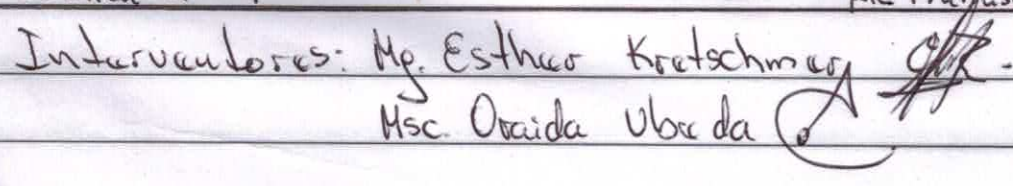 Interventores: Mg. Esther Kretschmer
Msc. Oraida Ubeda